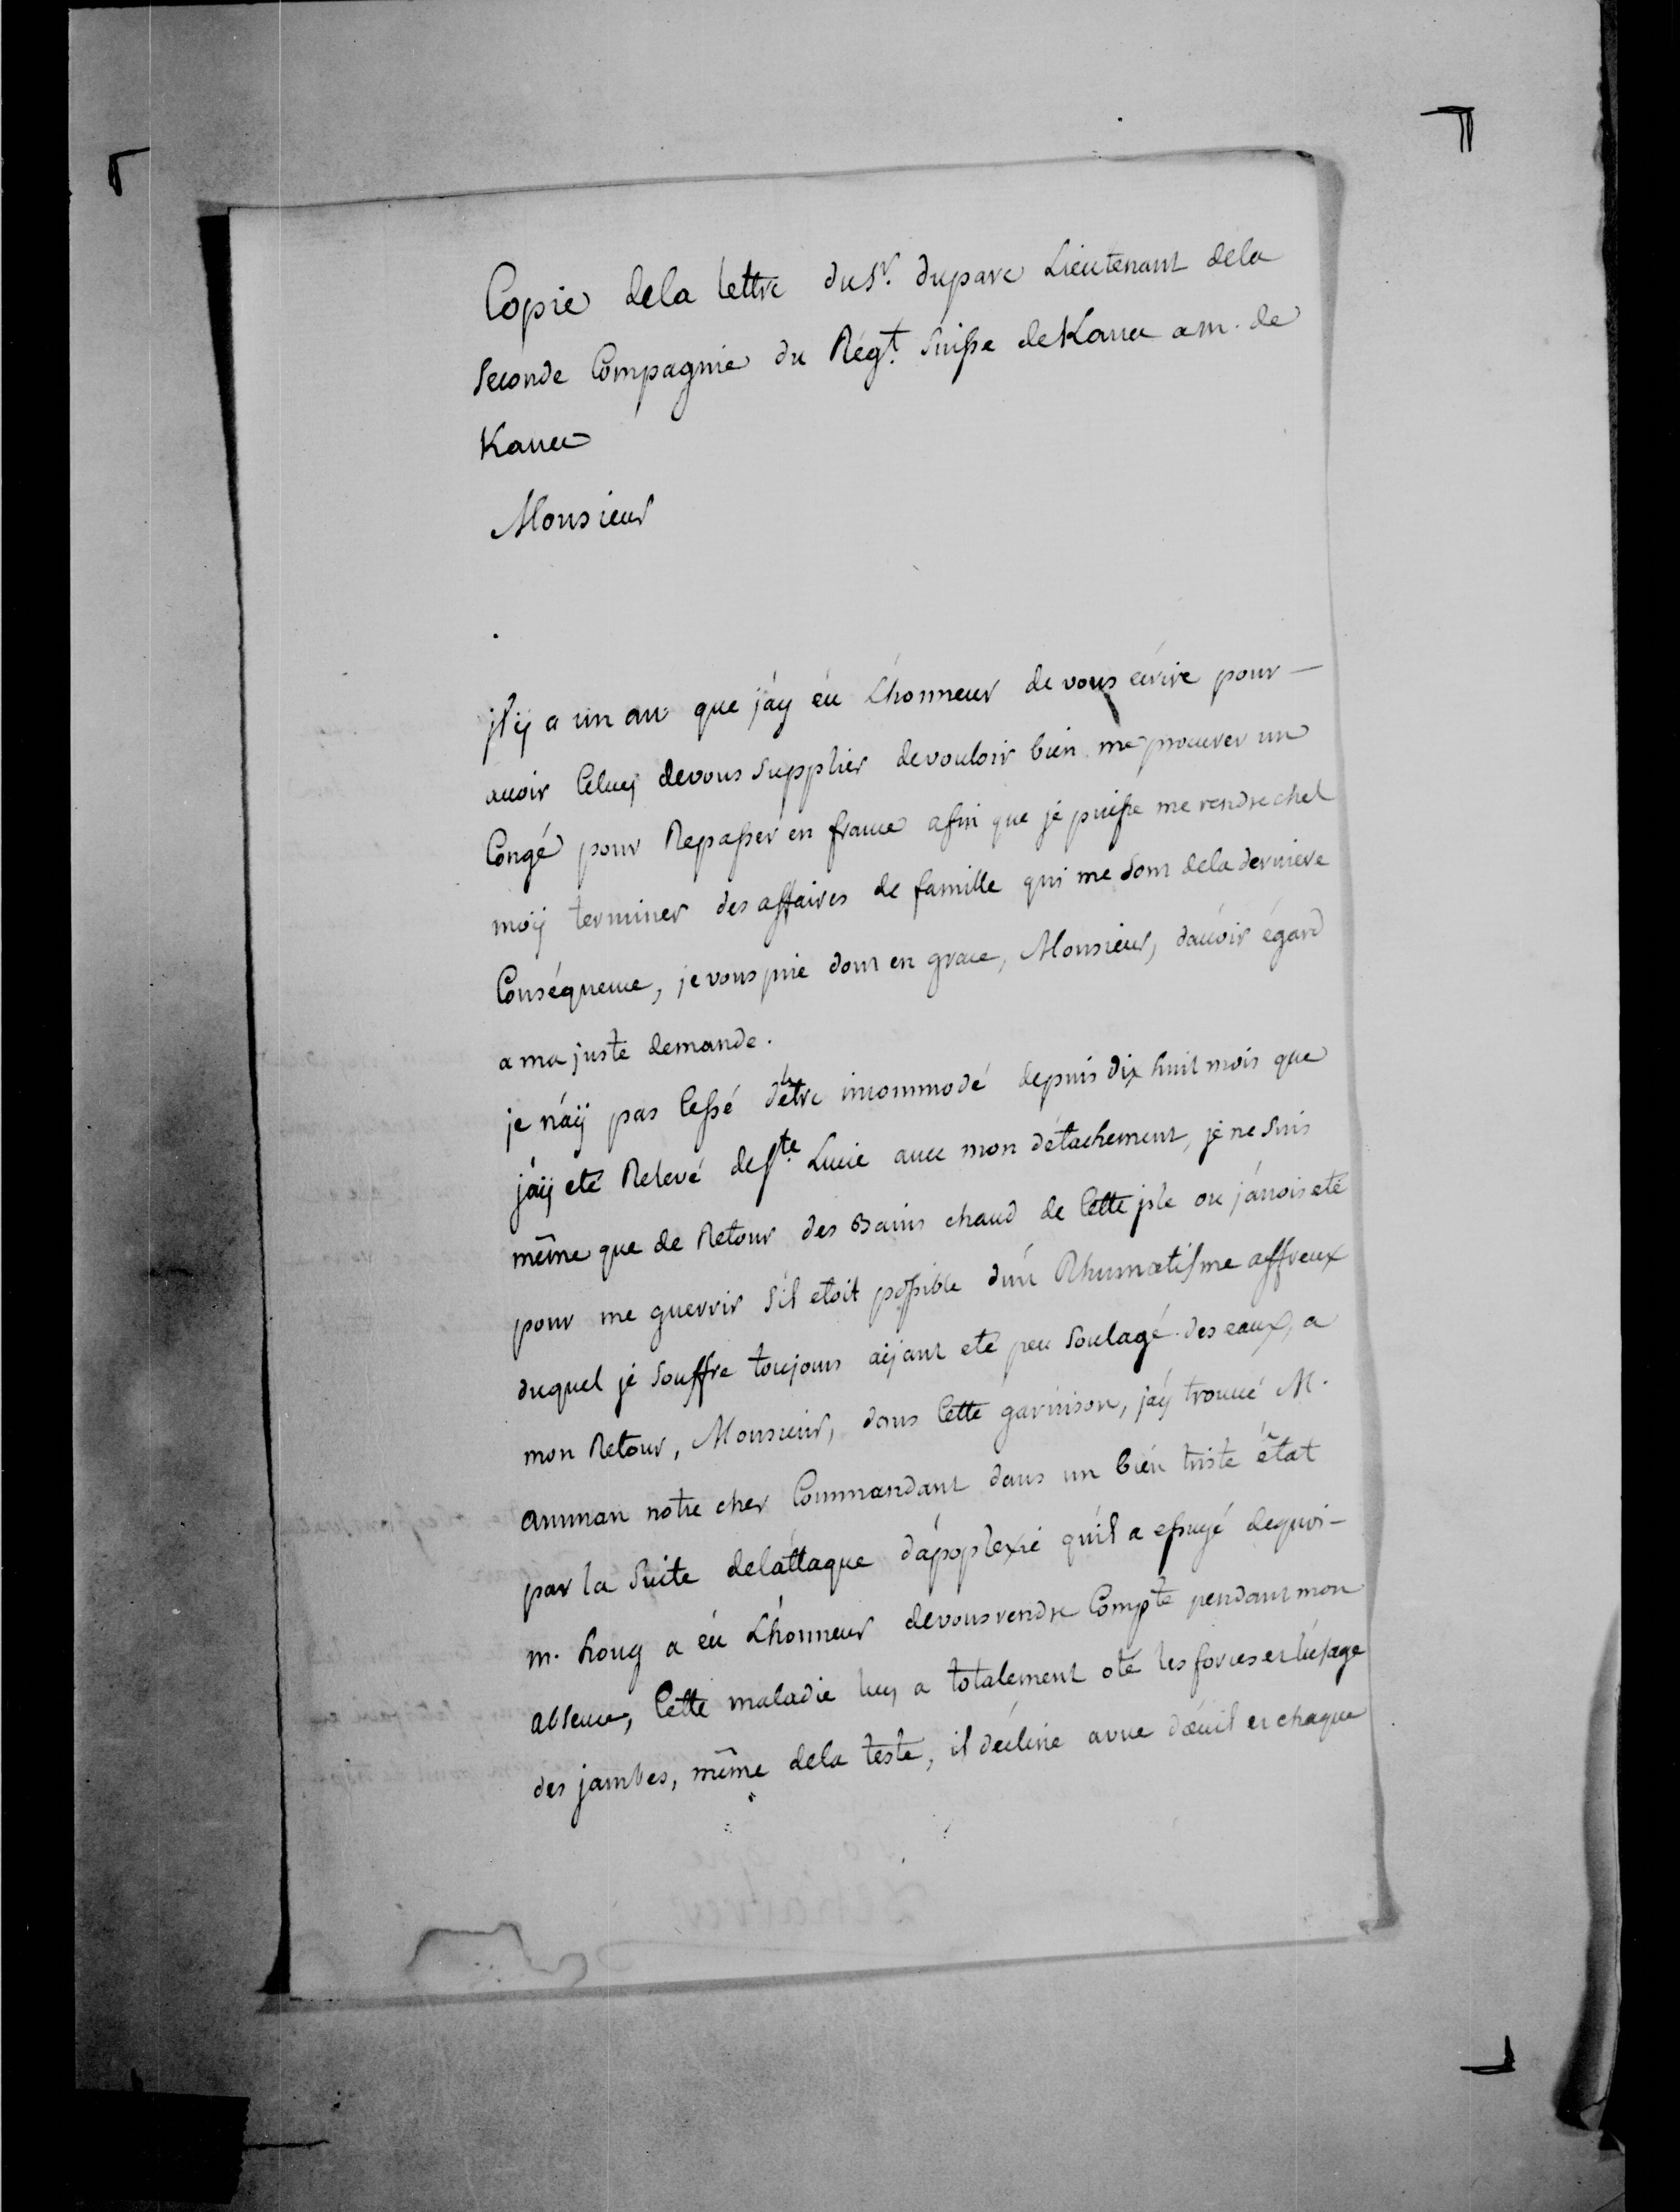 Copie dela lettre du Sr. duparc Lieutenant dela
Seconde Compagnie du Régt. Suisse de Karrer a m. de
Karrer
Monsieur
jl ÿ a un an que j'aÿ éu L'honneur de vous écrire pour
auoir Celuy de vous Supplier de vouloir bien me procurer un
Congé pour Repasser en france afin que je puisse me rendre chel
moÿ terminer des affaires de famille qui me Sont dela derniere
Conséquence, je vous prie donc en grace, Monsieur, d'auoir égard
a ma juste demande.
je n'aÿ pas Cessé d'être incommodé depuis dix huit mois que
j'aÿ eté Relevé de Ste. Lucie auec mon détachement, je ne Suis
même que de Retour des Bains chaud de Cette jsle ou j'auois eté
pour me guerrir S'il etoit possible d'un Rhumatisme affreux
duquel je Souffre toujours aÿant eté peu Soulagé des eaux, a
mon Retour, Monsieur, dans Cette garnison, j'aÿ trouué M.
amman notre cher Commandant dans un bien triste êtat
par la Suite de l'attaque d'apoplexie qu'il a essuyé de quoi
m. houg a éu L'honneur de vous rendre Compte pendant mon
absence, Cette maladie luy a totalement oté les forces et l'usage
des jambes, même dela teste, il décline a vue d'œuil et chaque